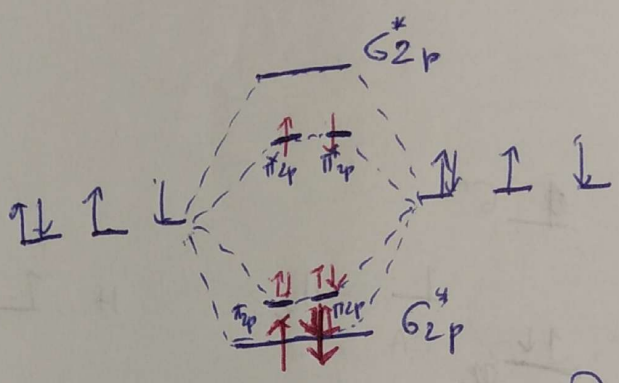 σ*2p
π*2p π*2p
π2p π2p
σ*2p